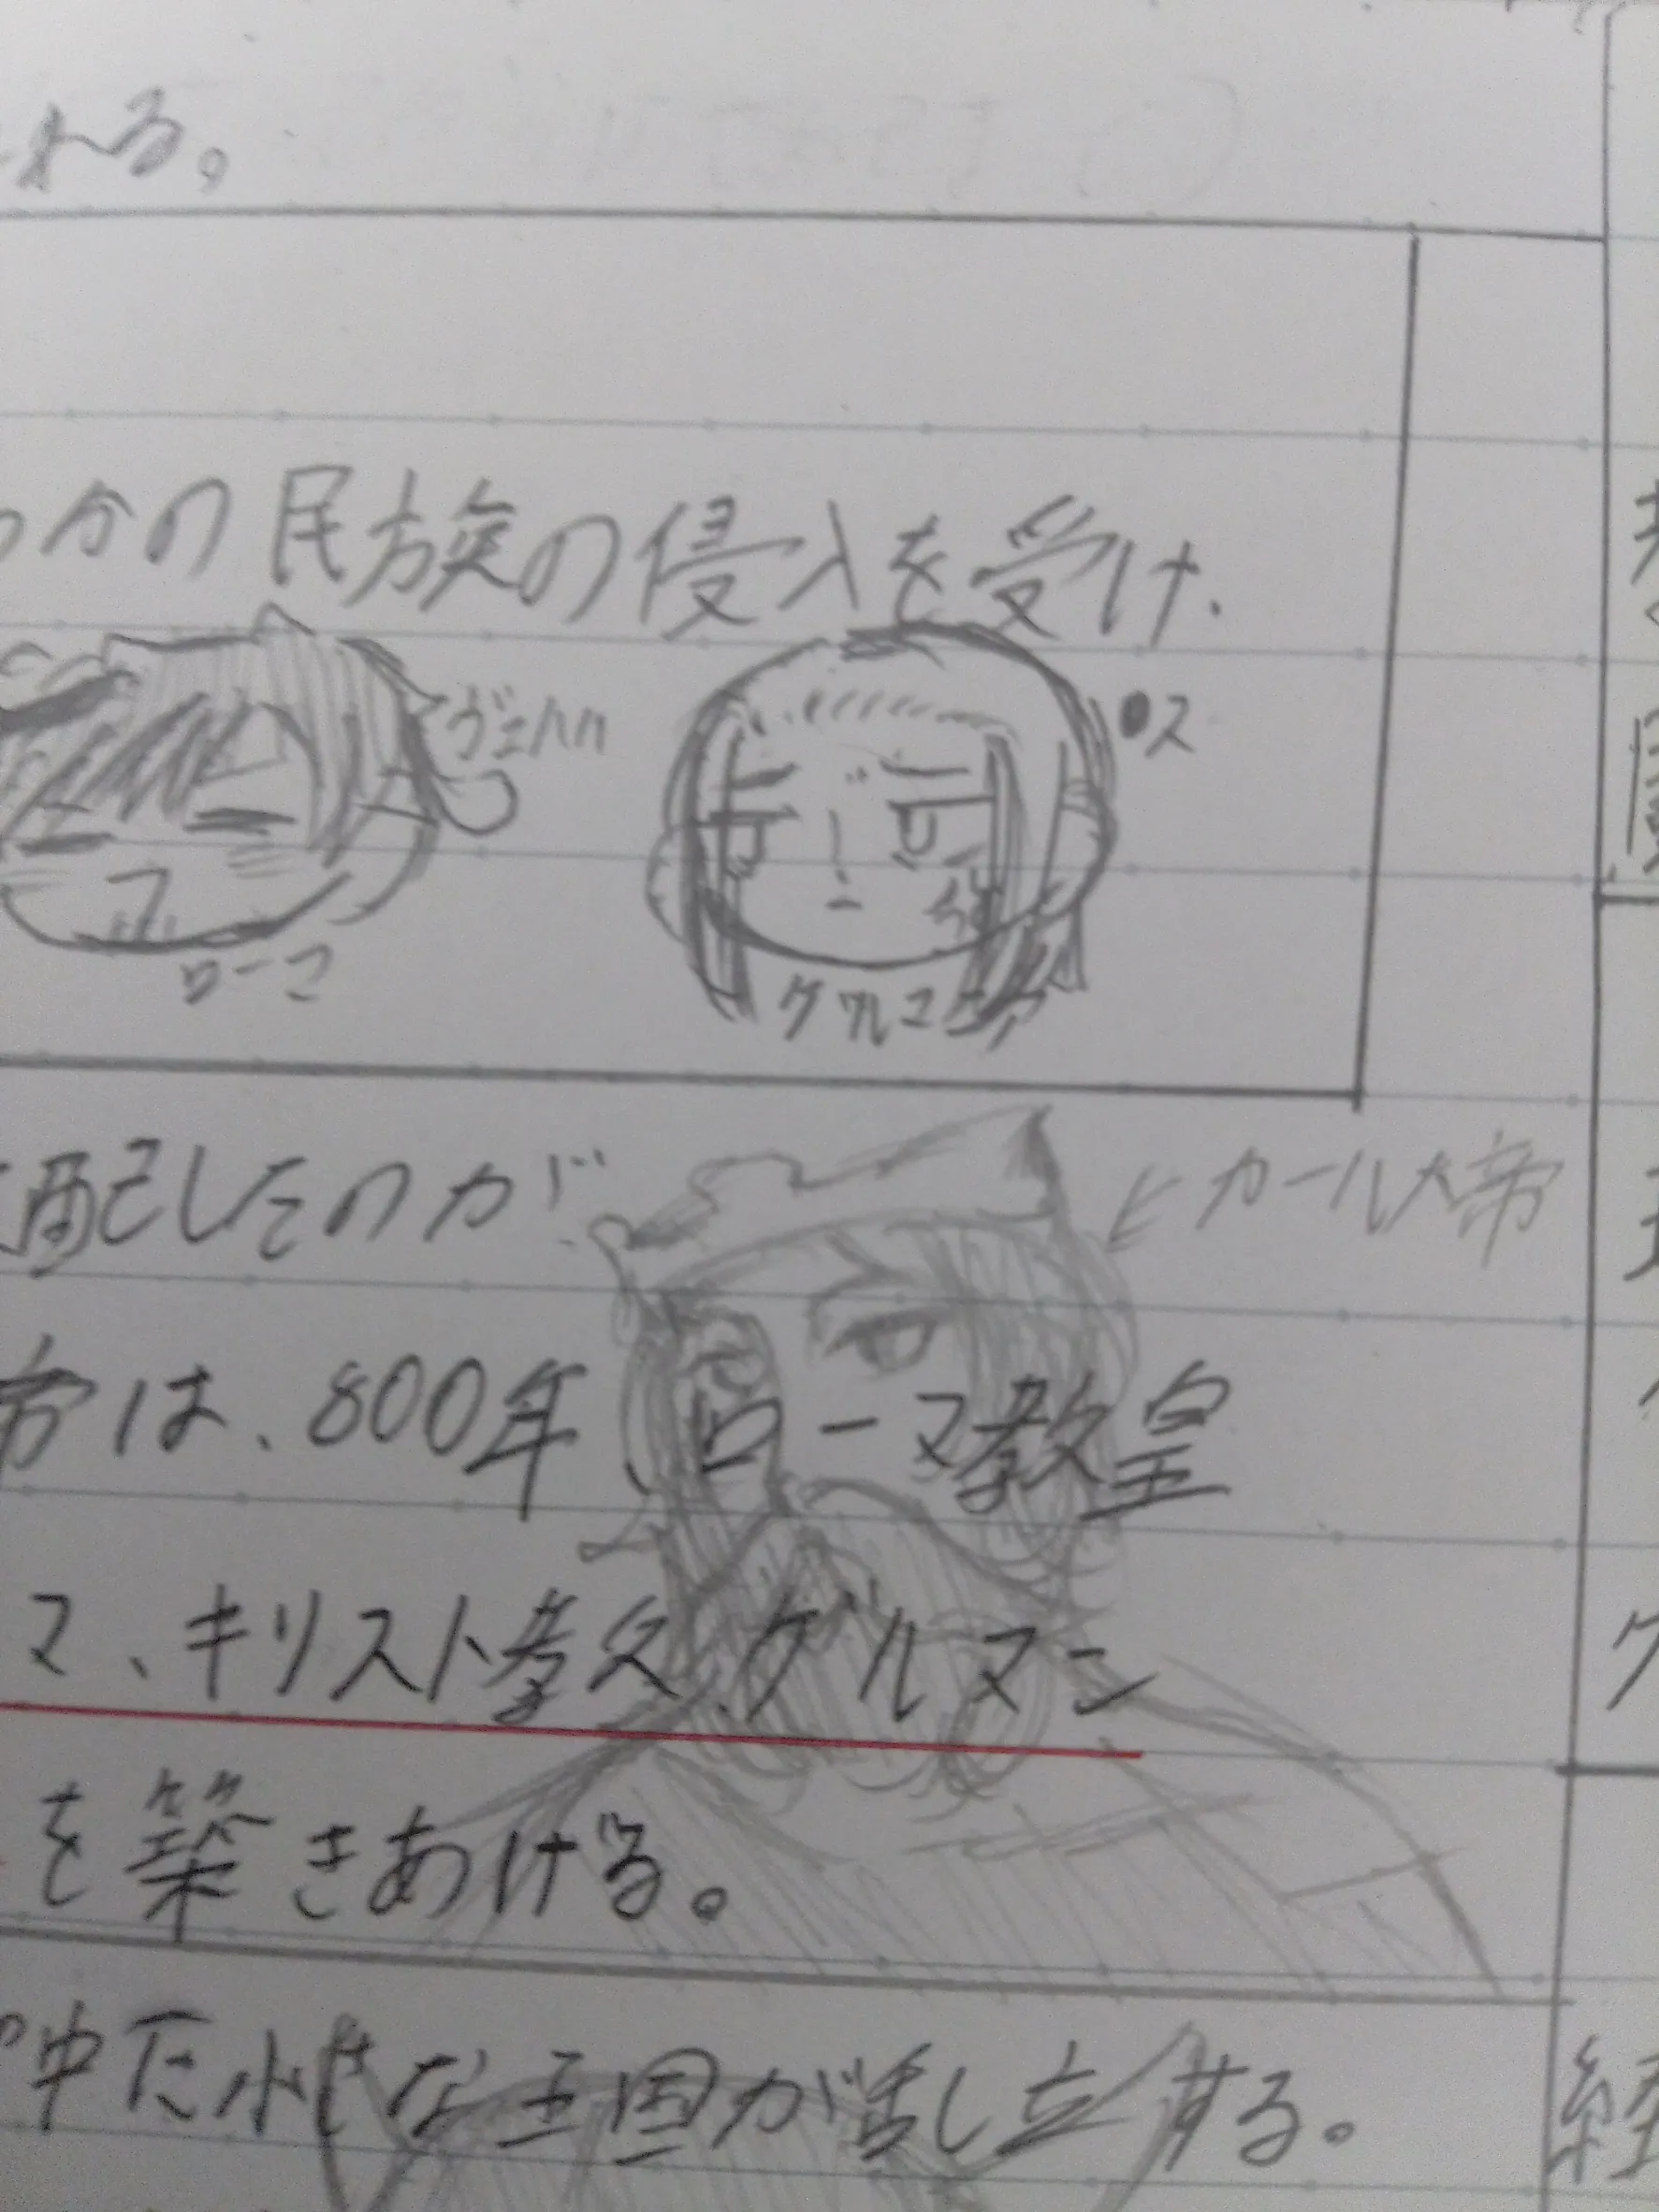 れる。
つかの民族の侵入を受け、
ヴェハハ
●ス
ローマ
ゲルマニア
配したのが
←カール大帝
帝は、800年、ローマ教皇
マ、キリスト教、ゲルマン
を築きあげる。
中に小さな王国が乱立する。